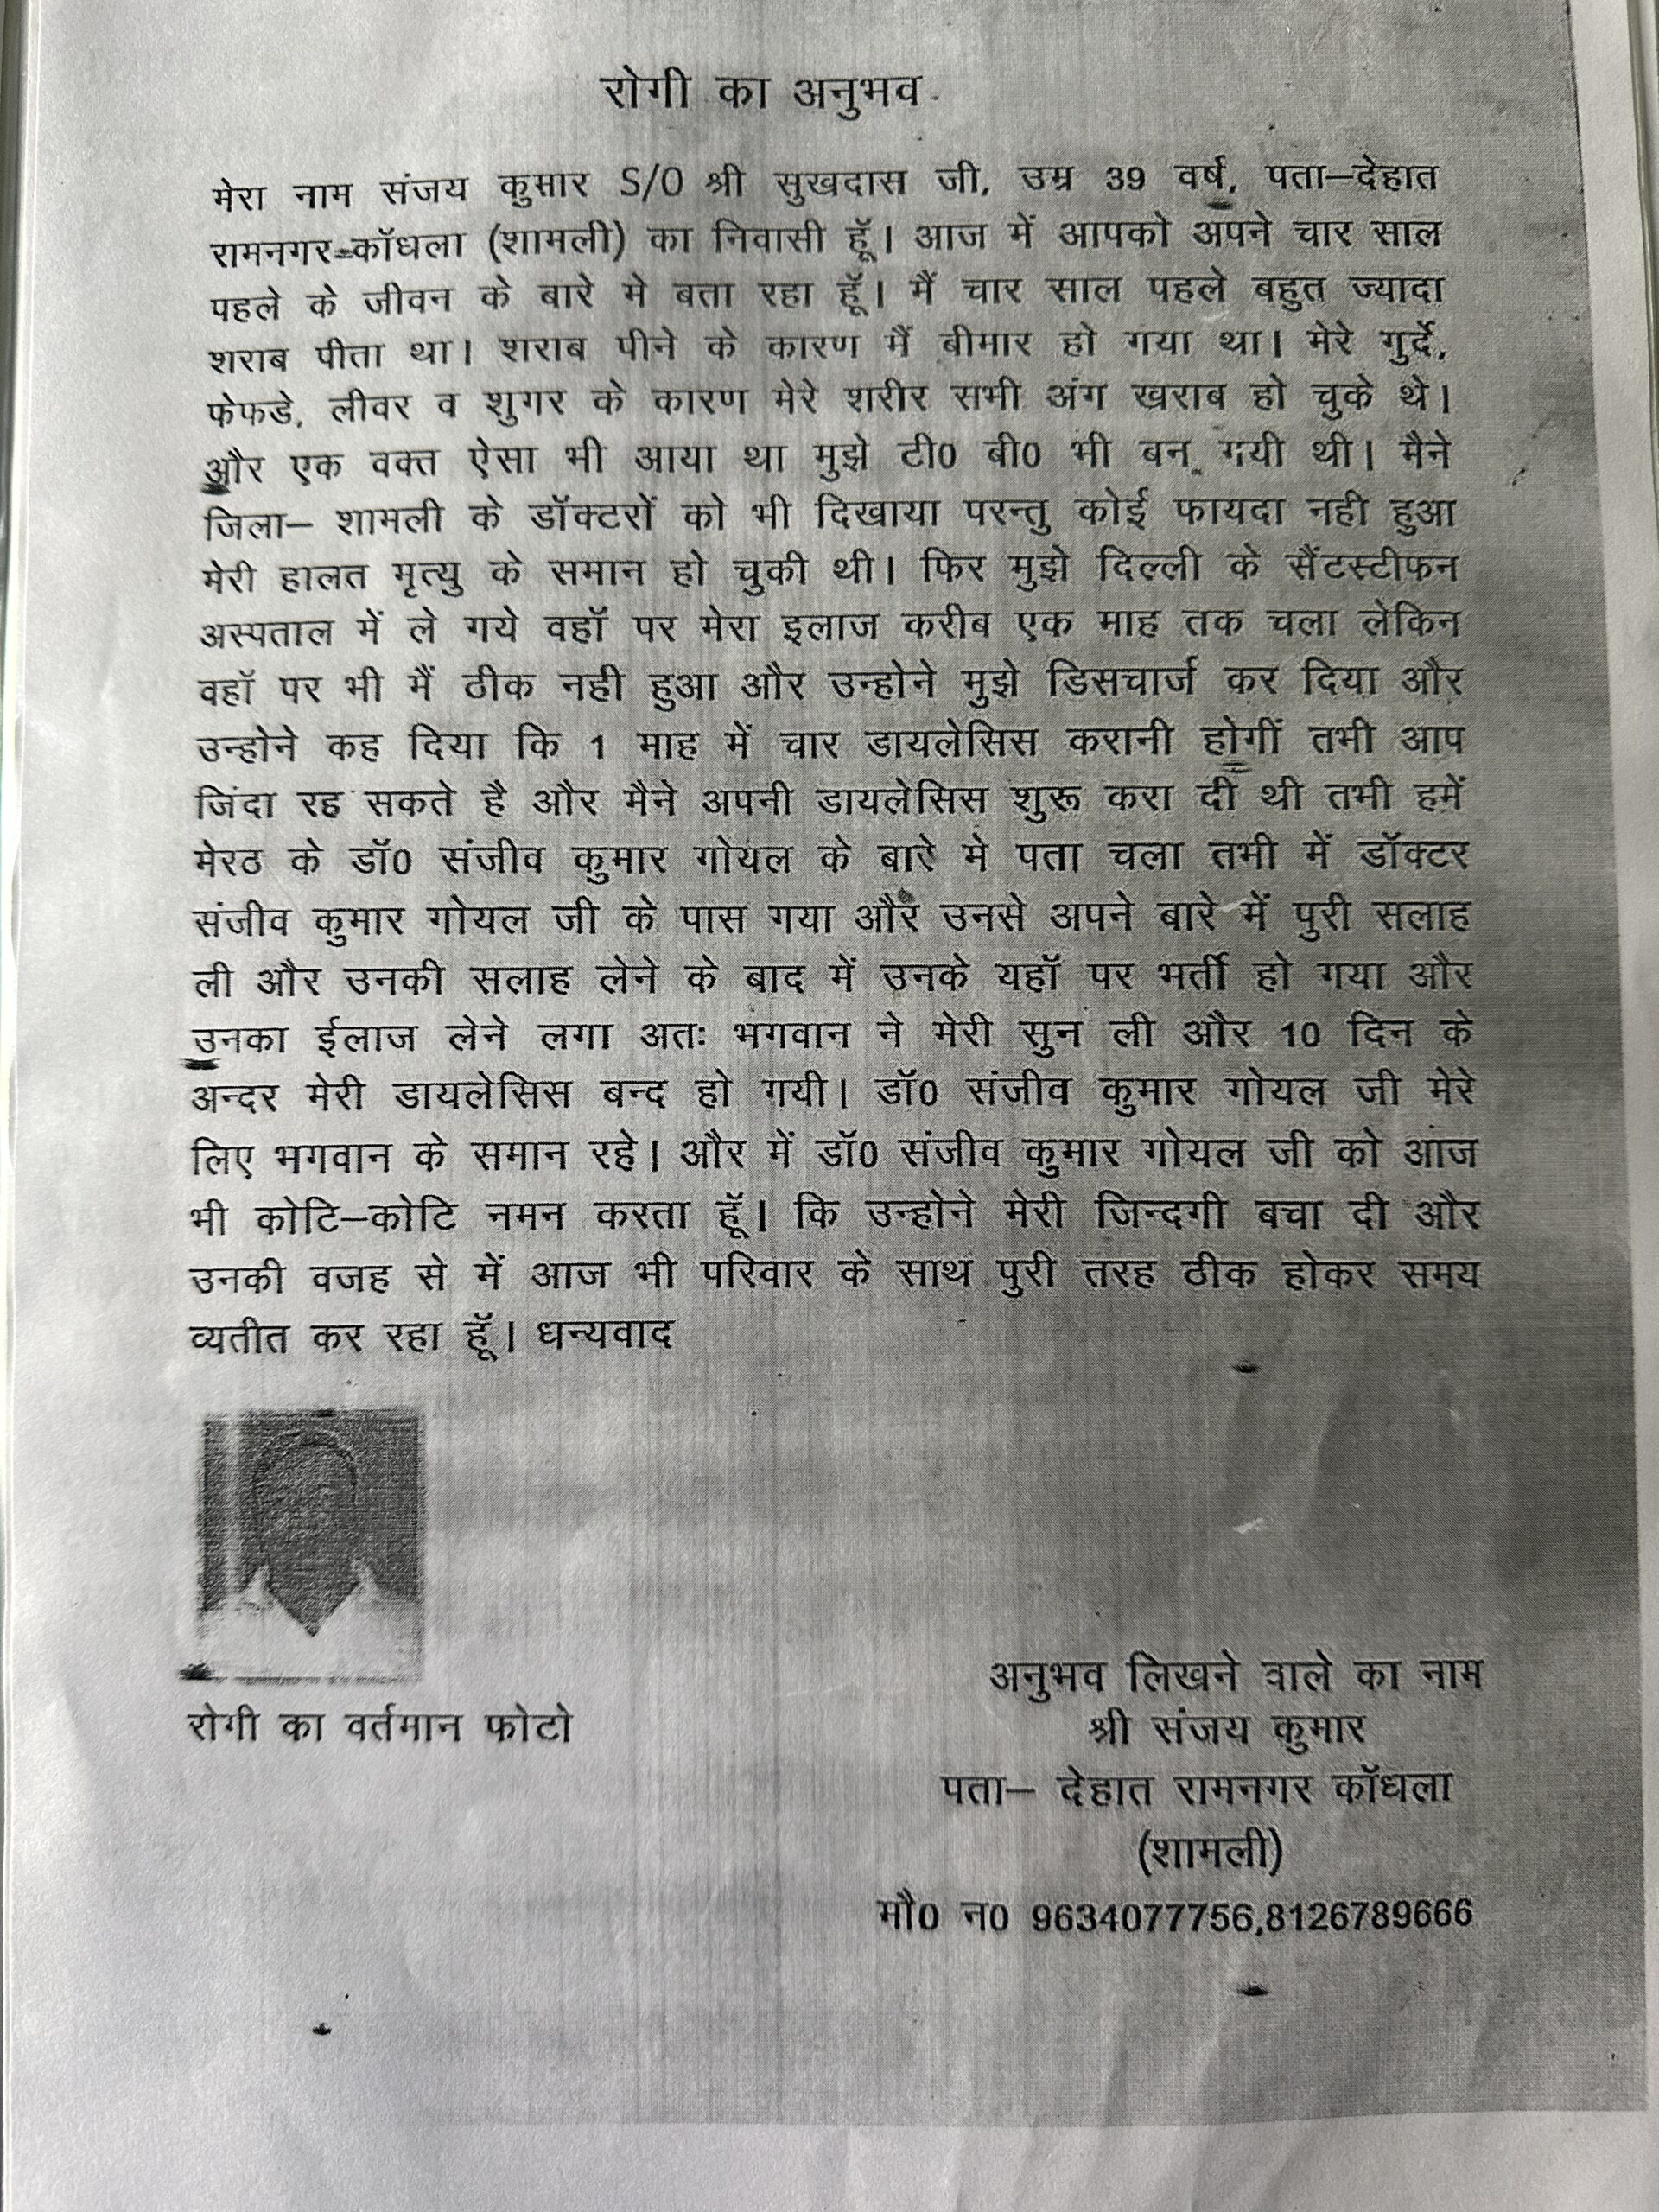 रोगी का अनुभव
मेरा नाम संजय कुमार S/O श्री सुखदास जी, उम्र 39 वर्ष, पता–देहात
रामनगर–कॉधला (शामली) का निवासी हूॅं। आज में आपको अपने चार साल
पहले के जीवन के बारे मे बता रहा हूॅं। मैं चार साल पहले बहुत ज्यादा
शराब पीता था। शराब पीने के कारण मैं बीमार हो गया था। मेरे गुर्दे,
फेफडे, लीवर व शुगर के कारण मेरे शरीर सभी अंग खराब हो चुके थे।
और एक वक्त ऐसा भी आया था मुझे टी0 बी0 भी बन गयी थी। मैने
जिला– शामली के डॉक्टरों को भी दिखाया परन्तु कोई फायदा नही हुआ
मेरी हालत मृत्यु के समान हो चुकी थी। फिर मुझे दिल्ली के सैंटस्टीफन
अस्पताल में ले गये वहॉ पर मेरा इलाज करीब एक माह तक चला लेकिन
वहॉ पर भी मैं ठीक नही हुआ और उन्होने मुझे डिसचार्ज कर दिया और
उन्होने कह दिया कि 1 माह में चार डायलेसिस करानी होगीं तभी आप
जिंदा रह सकते है और मैने अपनी डायलेसिस शुरू करा दी थी तभी हमें
मेरठ के डॉ0 संजीव कुमार गोयल के बारे मे पता चला तभी में डॉक्टर
संजीव कुमार गोयल जी के पास गया और उनसे अपने बारे में पुरी सलाह
ली और उनकी सलाह लेने के बाद में उनके यहॉ पर भर्ती हो गया और
उनका ईलाज लेने लगा अतः भगवान ने मेरी सुन ली और 10 दिन के
अन्दर मेरी डायलेसिस बन्द हो गयी। डॉ0 संजीव कुमार गोयल जी मेरे
लिए भगवान के समान रहे। और में डॉ0 संजीव कुमार गोयल जी को आज
भी कोटि–कोटि नमन करता हूॅं। कि उन्होने मेरी जिन्दगी बचा दी और
उनकी वजह से में आज भी परिवार के साथ पुरी तरह ठीक होकर समय
व्यतीत कर रहा हूॅं। धन्यवाद
रोगी का वर्तमान फोटो
अनुभव लिखने वाले का नाम
श्री संजय कुमार
पता– देहात रामनगर कॉधला
(शामली)
मौ0 न0 9634077756,8126789666